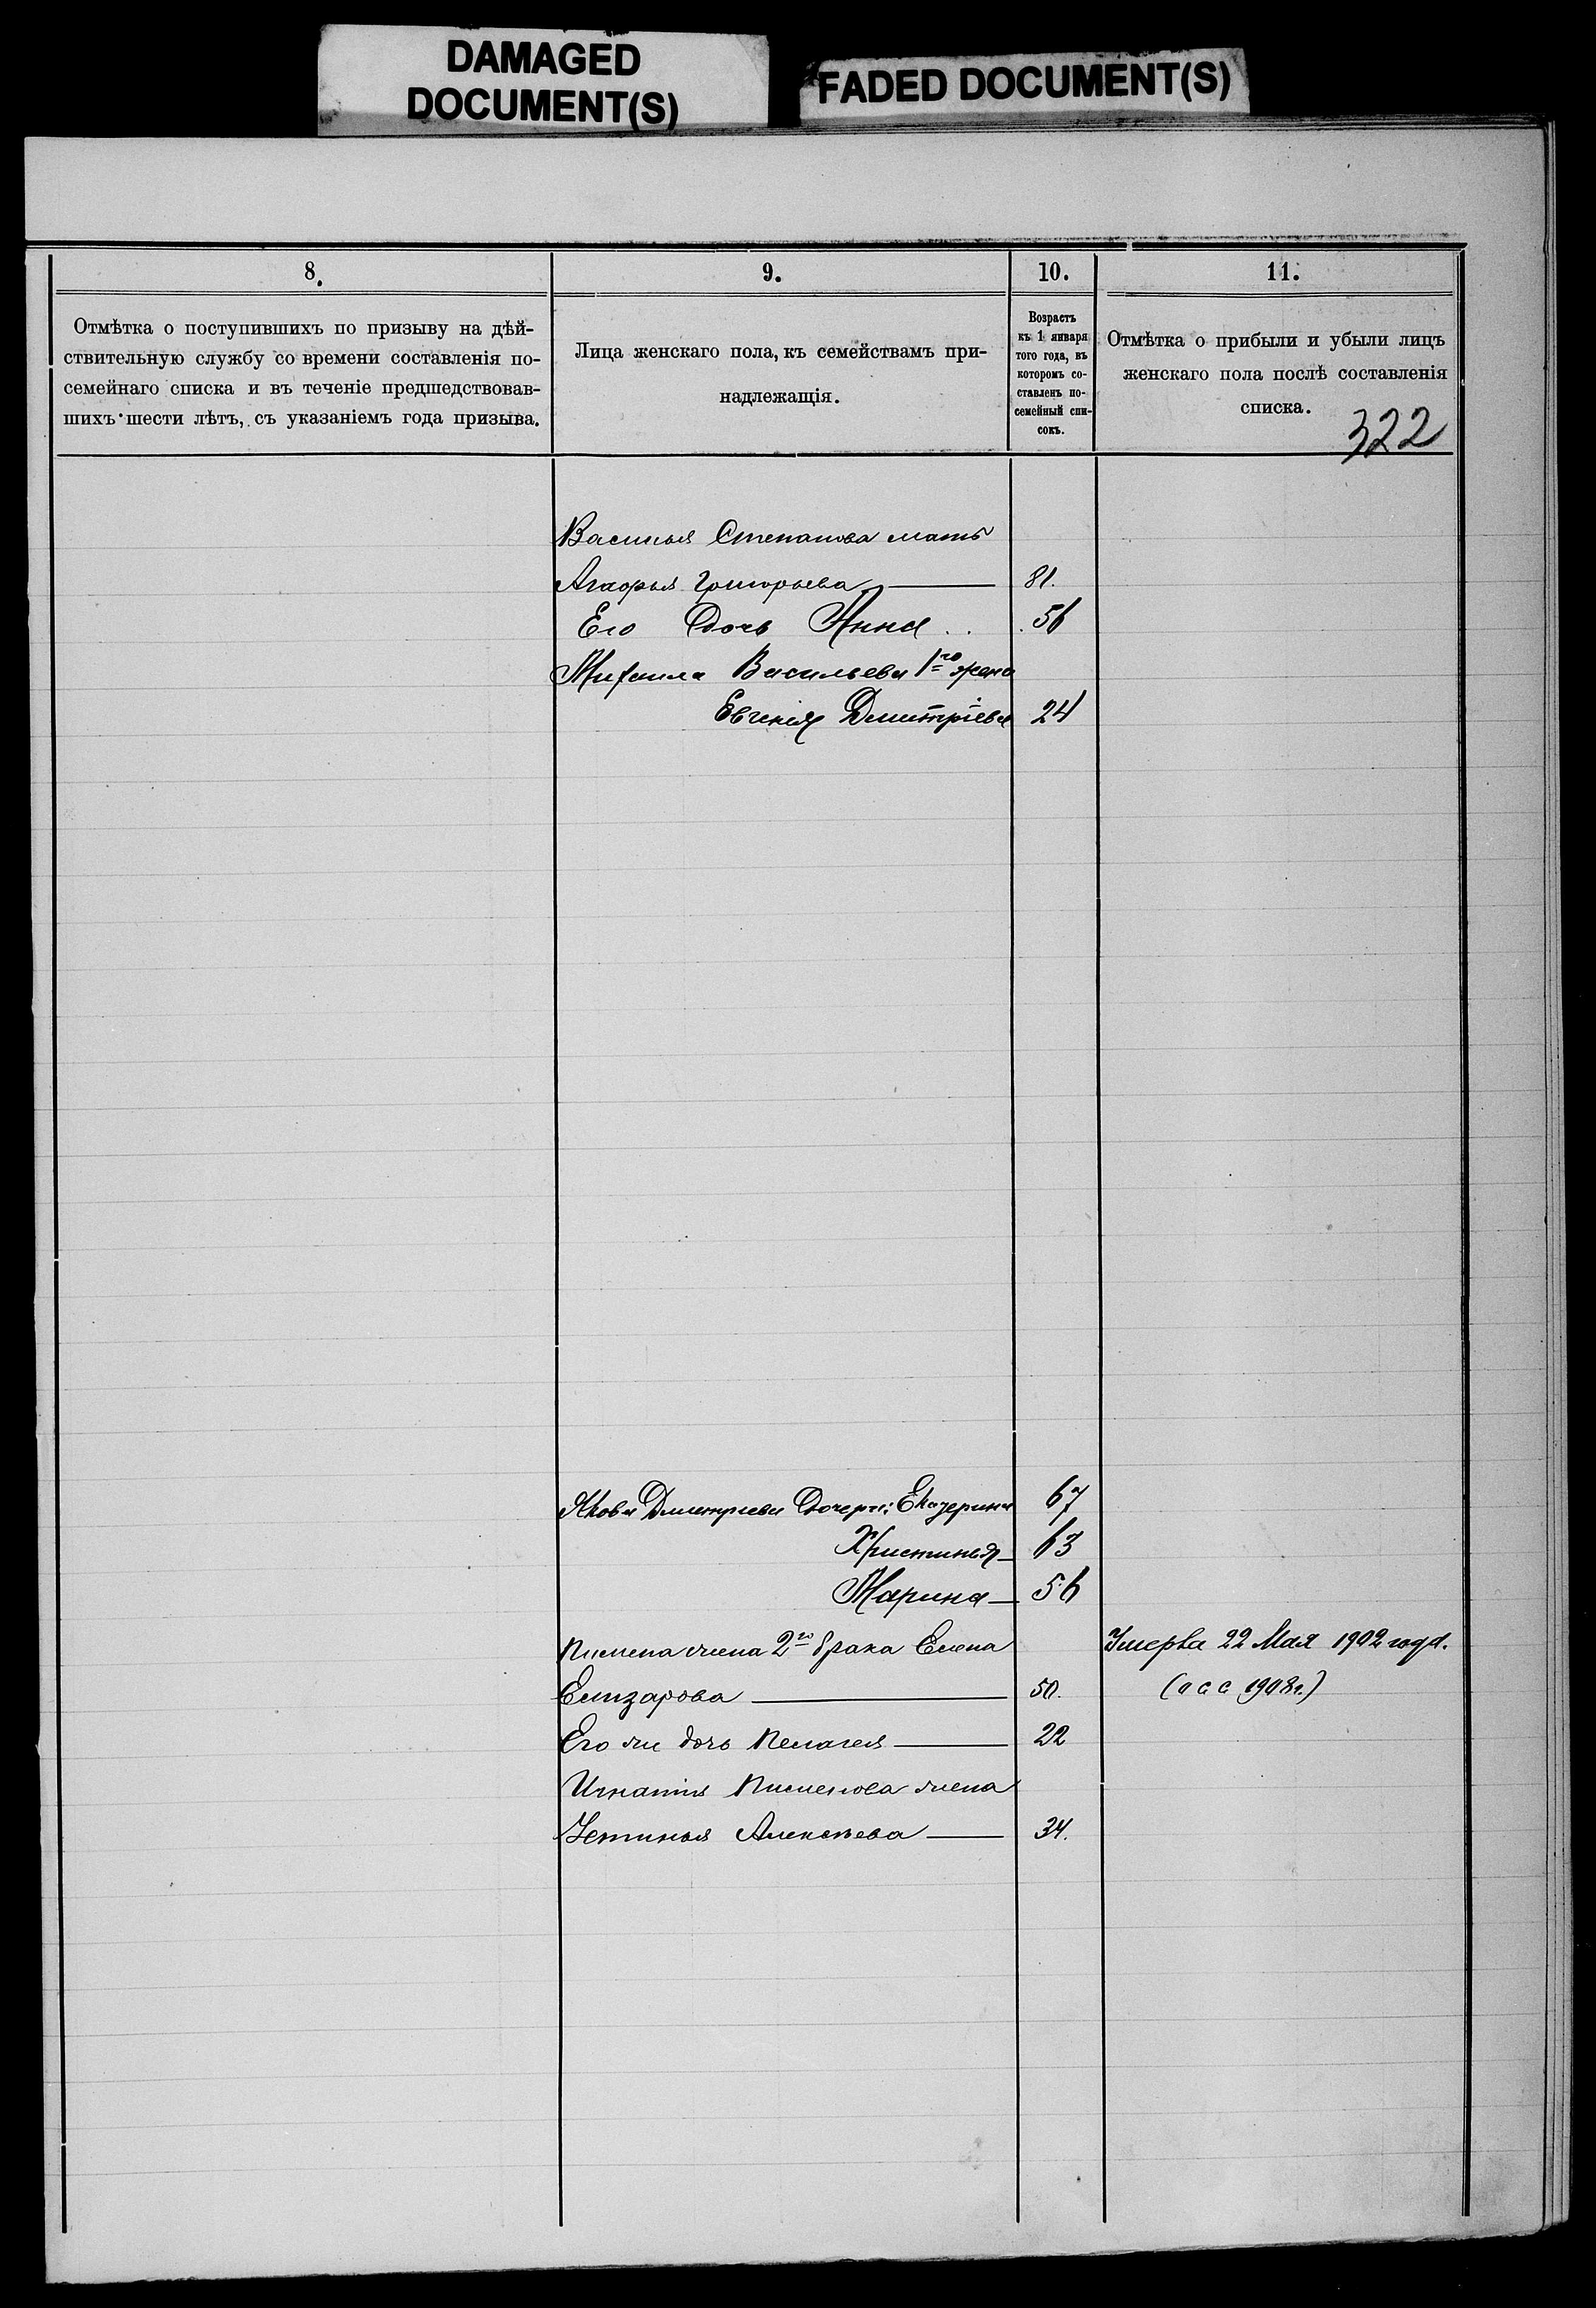 DAMAGED
DOCUMENT(S)
FADED DOCUMENT(S)
8.
Отмѣтка о поступившихъ по призыву на дѣй-
ствительную службу со времени составленія по-
семейнаго списка и въ теченіе предшедствовав-
шихъ шести лѣтъ, съ указаніемъ года призыва.
9.
Лица женскаго пола, къ семействамъ при-
надлежащія.
10.
Возрастъ
къ 1 января
того года, въ
которомъ со-
ставленъ по-
семейный спи-
сокъ.
11.
Отмѣтка о прибыли и убыли лицъ
женскаго пола послѣ составленія
списка.
322
Василья Степанова мать
Агафья Григорьева 81.
Его Дочь Анна 56
Михаила Васильева 1го жена
Евгенія Дмитріева 24
Якова Дмитриева Дочери: Екатерина 67
Христинья 63
Марина 56
Пимена жена 2го брака Елена
Елизарова 50.
Умерла 22 Мая 1902 года.
1908г.)
Его же дочь Пелагея 22
Игнатія Пименова жена
Устинья Алексѣева 34.